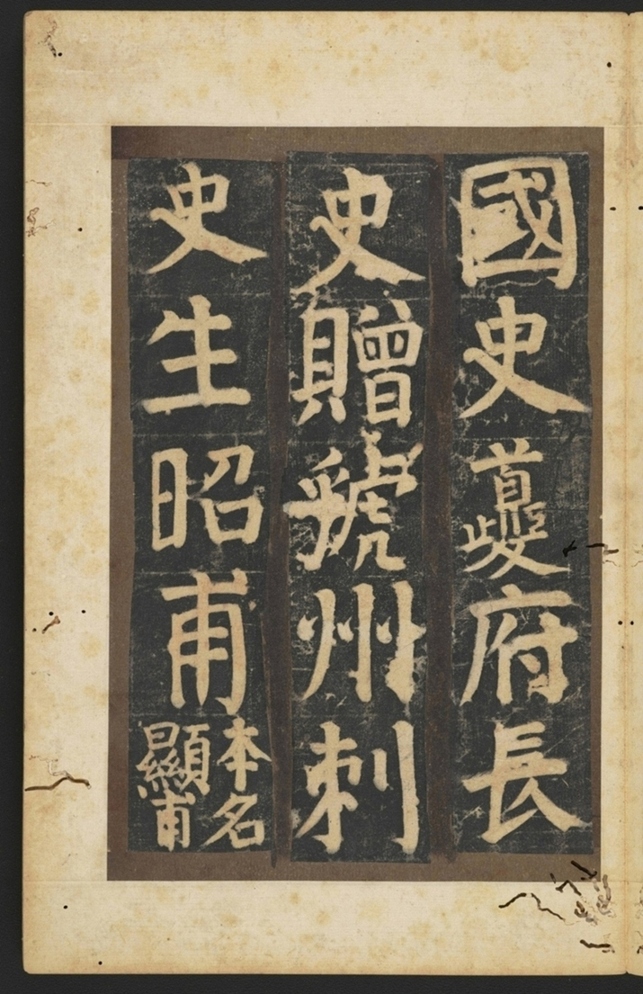 國史夔府長
史贈虢州刺
史生昭甫本名
顯甫